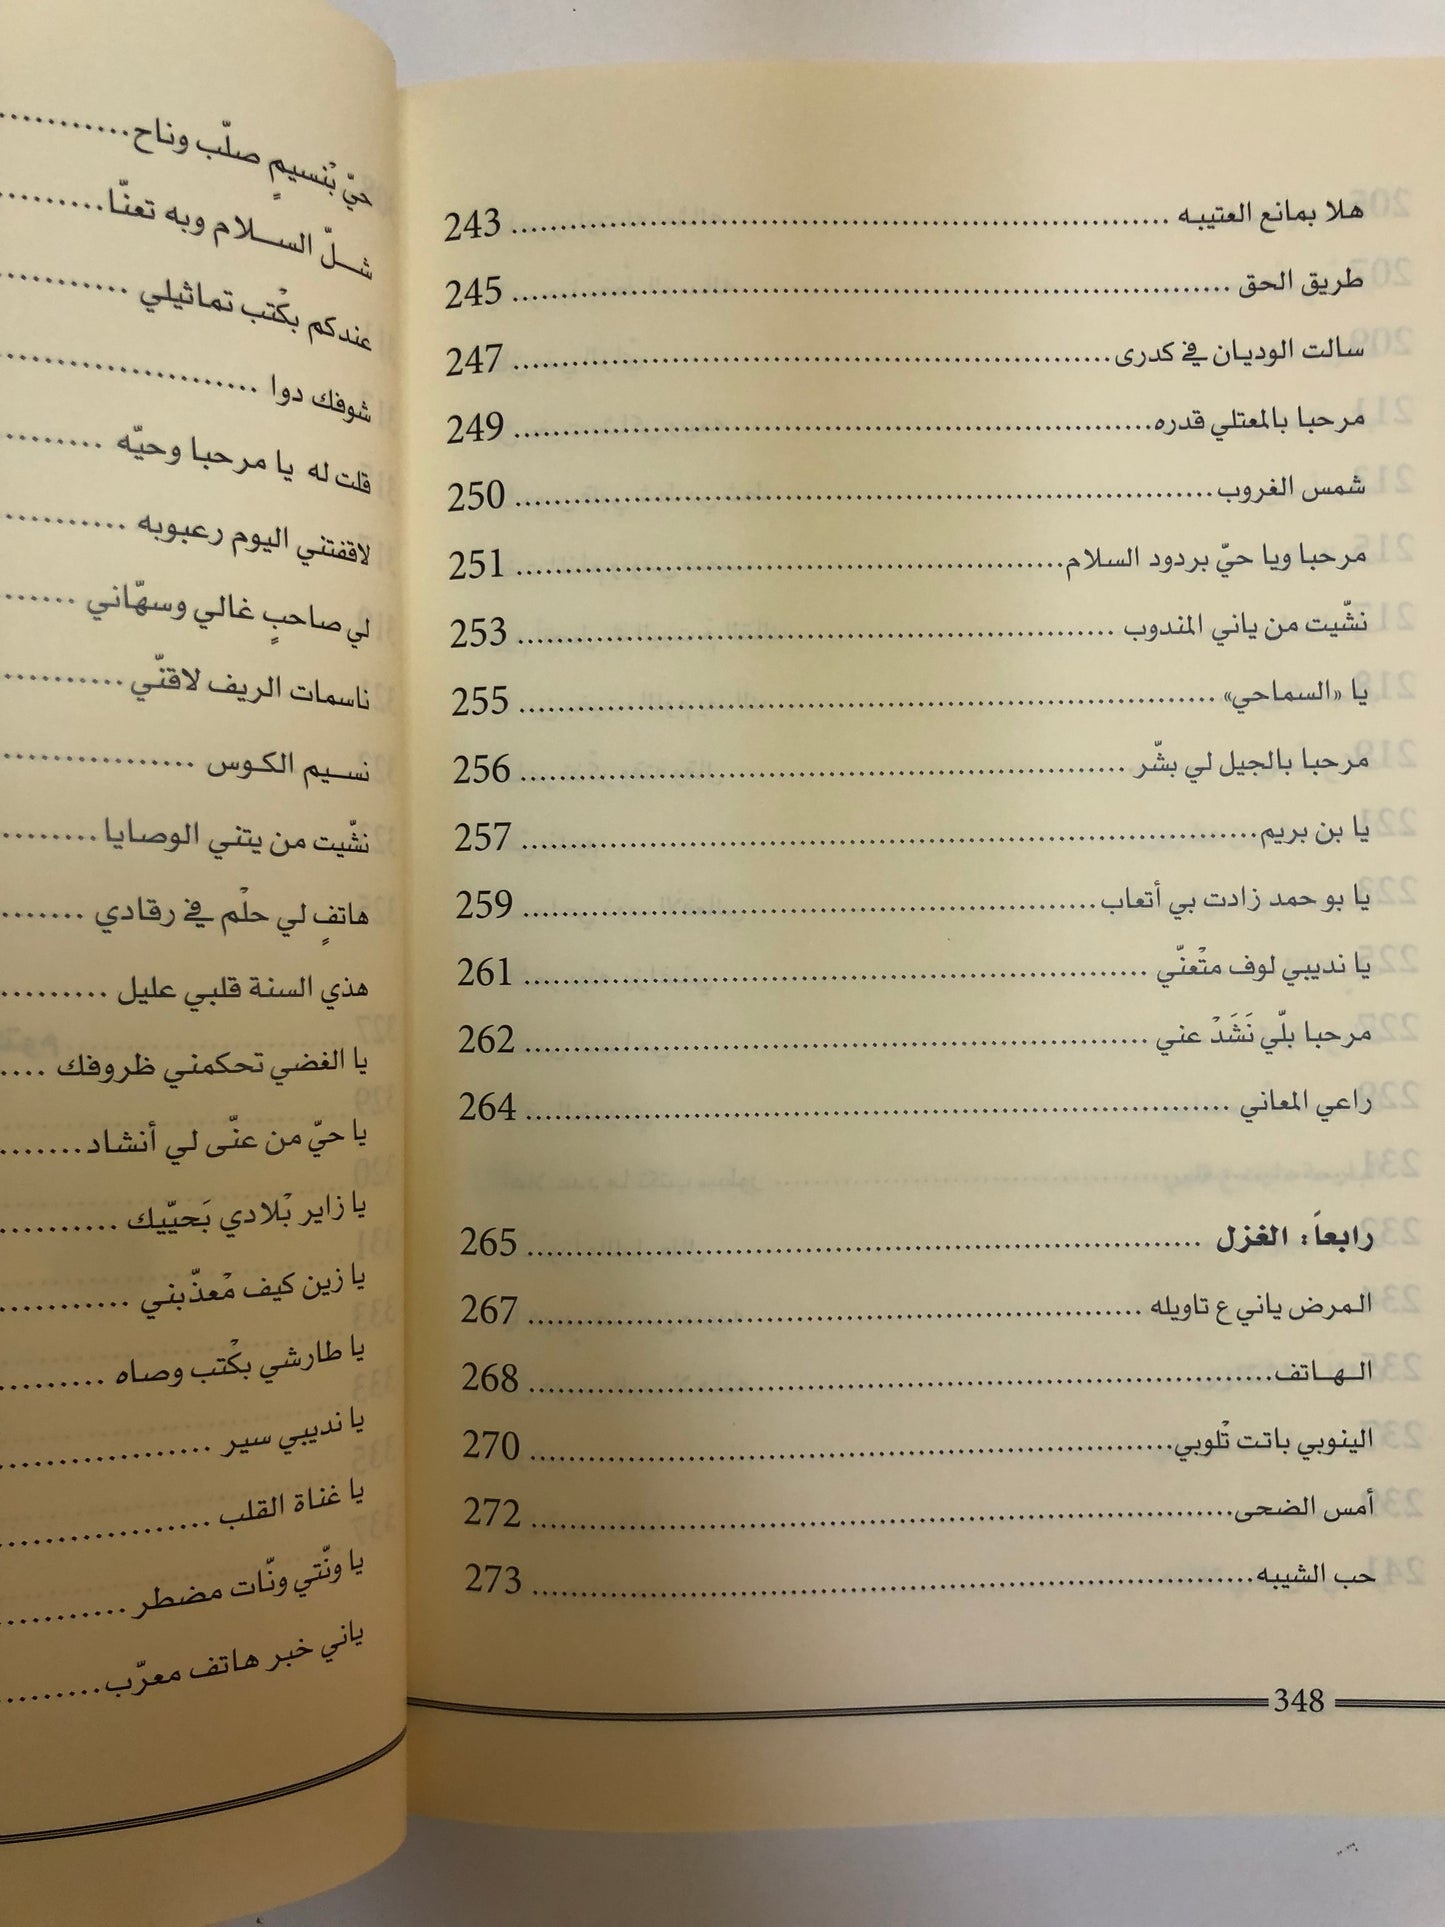 هلا بمانع العتيبه ........ 243
طريق الحق ........ 245
سالت الوديان في كدرى ........ 247
مرحبا بالمعتلي قدره ........ 249
شمس الغروب ........ 250
مرحبا ويا حيّ بردود السلام ........ 251
نشّيت من ياني المندوب ........ 253
يا «السماحي» ........ 255
مرحبا بالجيل لي بشّر ........ 256
يا بن بريم ........ 257
يا بو حمد زادت بي أتعاب ........ 259
يا نديبي لوف متْعنّي ........ 261
مرحبا بلّي نَشَدْ عني ........ 262
راعي المعاني ........ 264
رابعاً: الغزل ........ 265
المرض ياني ع تاويله ........ 267
الـهـاتف ........ 268
الينوبي باتت تْلوبي ........ 270
أمس الضحى ........ 272
حب الشيبه ........ 273
348
حيّ بْنسيمٍ صلّب وناح ........
شـلّ السـلام وبه تعنّا ........
عندكم بكْتب تماثيلي ........
شوفك دوا ........
قلت له يا مرحبا وحيّه ........
لاقفتني اليوم رعبوبه ........
لي صاحبٍ غالي وسهّاني ........
ناسمات الريف لاقنّي ........
نسـيم الكـوس ........
نشّيت من يتني الوصايا ........
هاتفٍ لي حلْم في رقادي ........
هذي السنة قلبي عليل ........
يا الغضي تحكمني ظروفك ....
يا حيّ من عنّى لي أنشاد ........
يا زاير بْلادي بَحيّيك ........
يا زين كيف مْعذّبني ........
يا طارشي بكْتب وصاه ........
يا نديبي سير ........
يا غناة القلب ........
يا ونّتي ونّات مضطر ........
ياني خبر هاتف معرّب ........